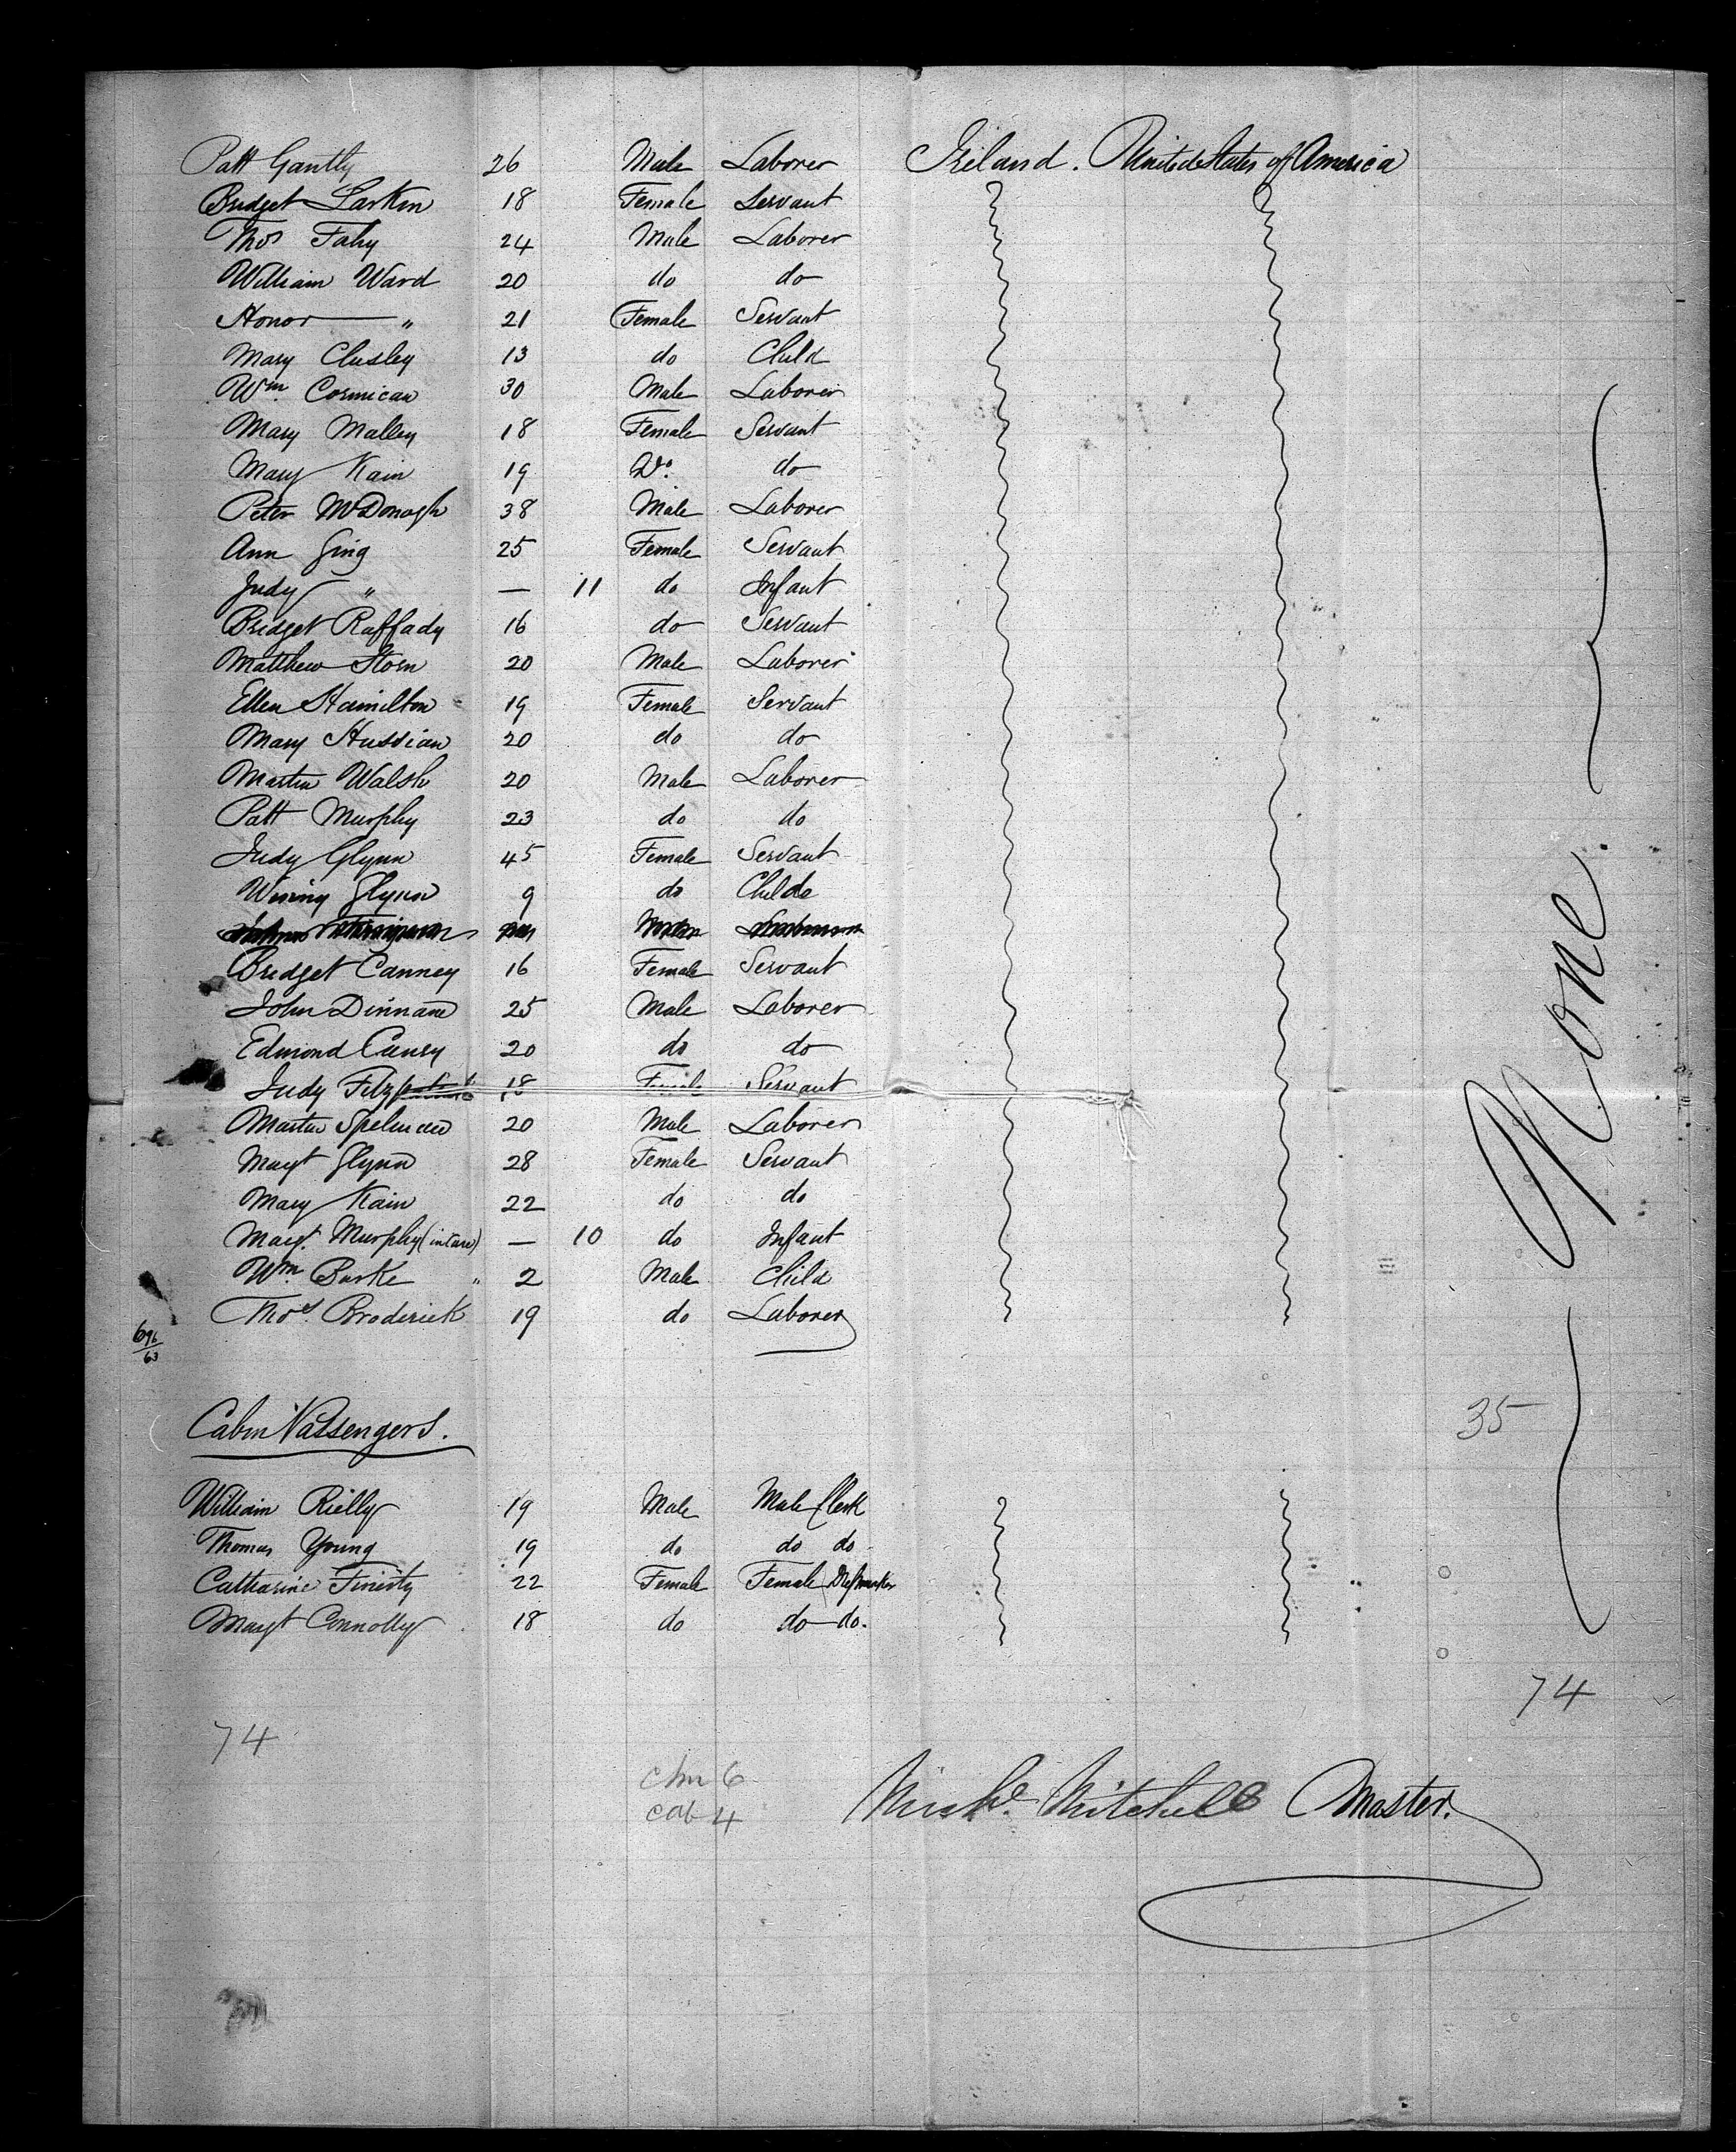 Patt Gantly 26 Male Laborer Ireland. United States of America
Bridget Larkin 18 Female Servant
Thos Fahy 24 Male Laborer
William Ward 20 do do
Honor — " 21 Female Servant
Mary Clusley 13 do Child
Wm. Cormican 30 Male Laborer
Mary Malley 18 Female Servant
Mary Kain 19 Do. do
Peter McDonagh 38 Male Laborer
Ann Ging 25 Female Servant
Judy " — 11 do Infant
Bridget Raffady 16 do Servant
Matthew Horn 20 Male Laborer
Ellen Hamilton 19 Female Servant
Mary Hussian 20 do do
Martin Walsh 20 Male Laborer
Patt Murphy 23 do do
Judy Glynn 45 Female Servant
Winny Glynn 9 do Child
Bridget Canney 16 Female Servant
John Dinnane 25 Male Laborer
Edmond Caury 20 do do
Judy 18 Female Servant
Martin Spelman 20 Male Laborer
Magt Glynn 28 Female Servant
Mary Kain 22 do do
Magt. Murphy (in care) — 10 do Infant
Wm. Burke " 2 Male Child
Thos. Broderick 19 do Laborer
696/63
None.
35
Cabin Passengers.
William Rielly 19 Male Male Clerk
Thomas Young 19 do do do
Catharine Finirty 22 Female Female
Magt Connolly 18 do do do.
74
74
chn 6
cab 4
Michl. Mitchell Master.